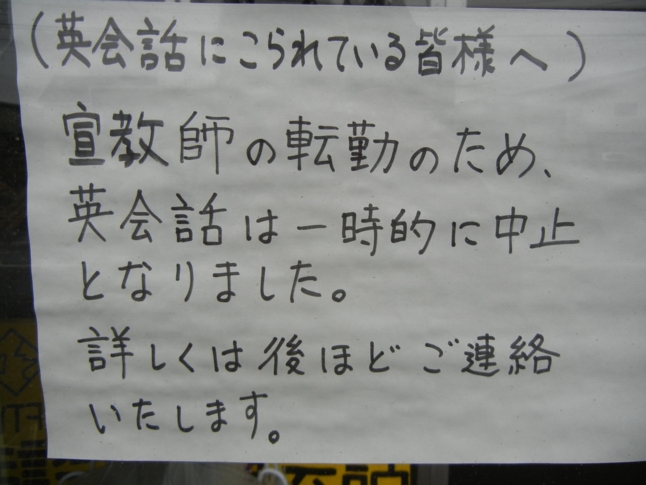 (英会話にこられている皆様へ)
宣教師の転勤のため、
英会話は一時的に中止
となりました。
詳しくは後ほどご連絡
いたします。